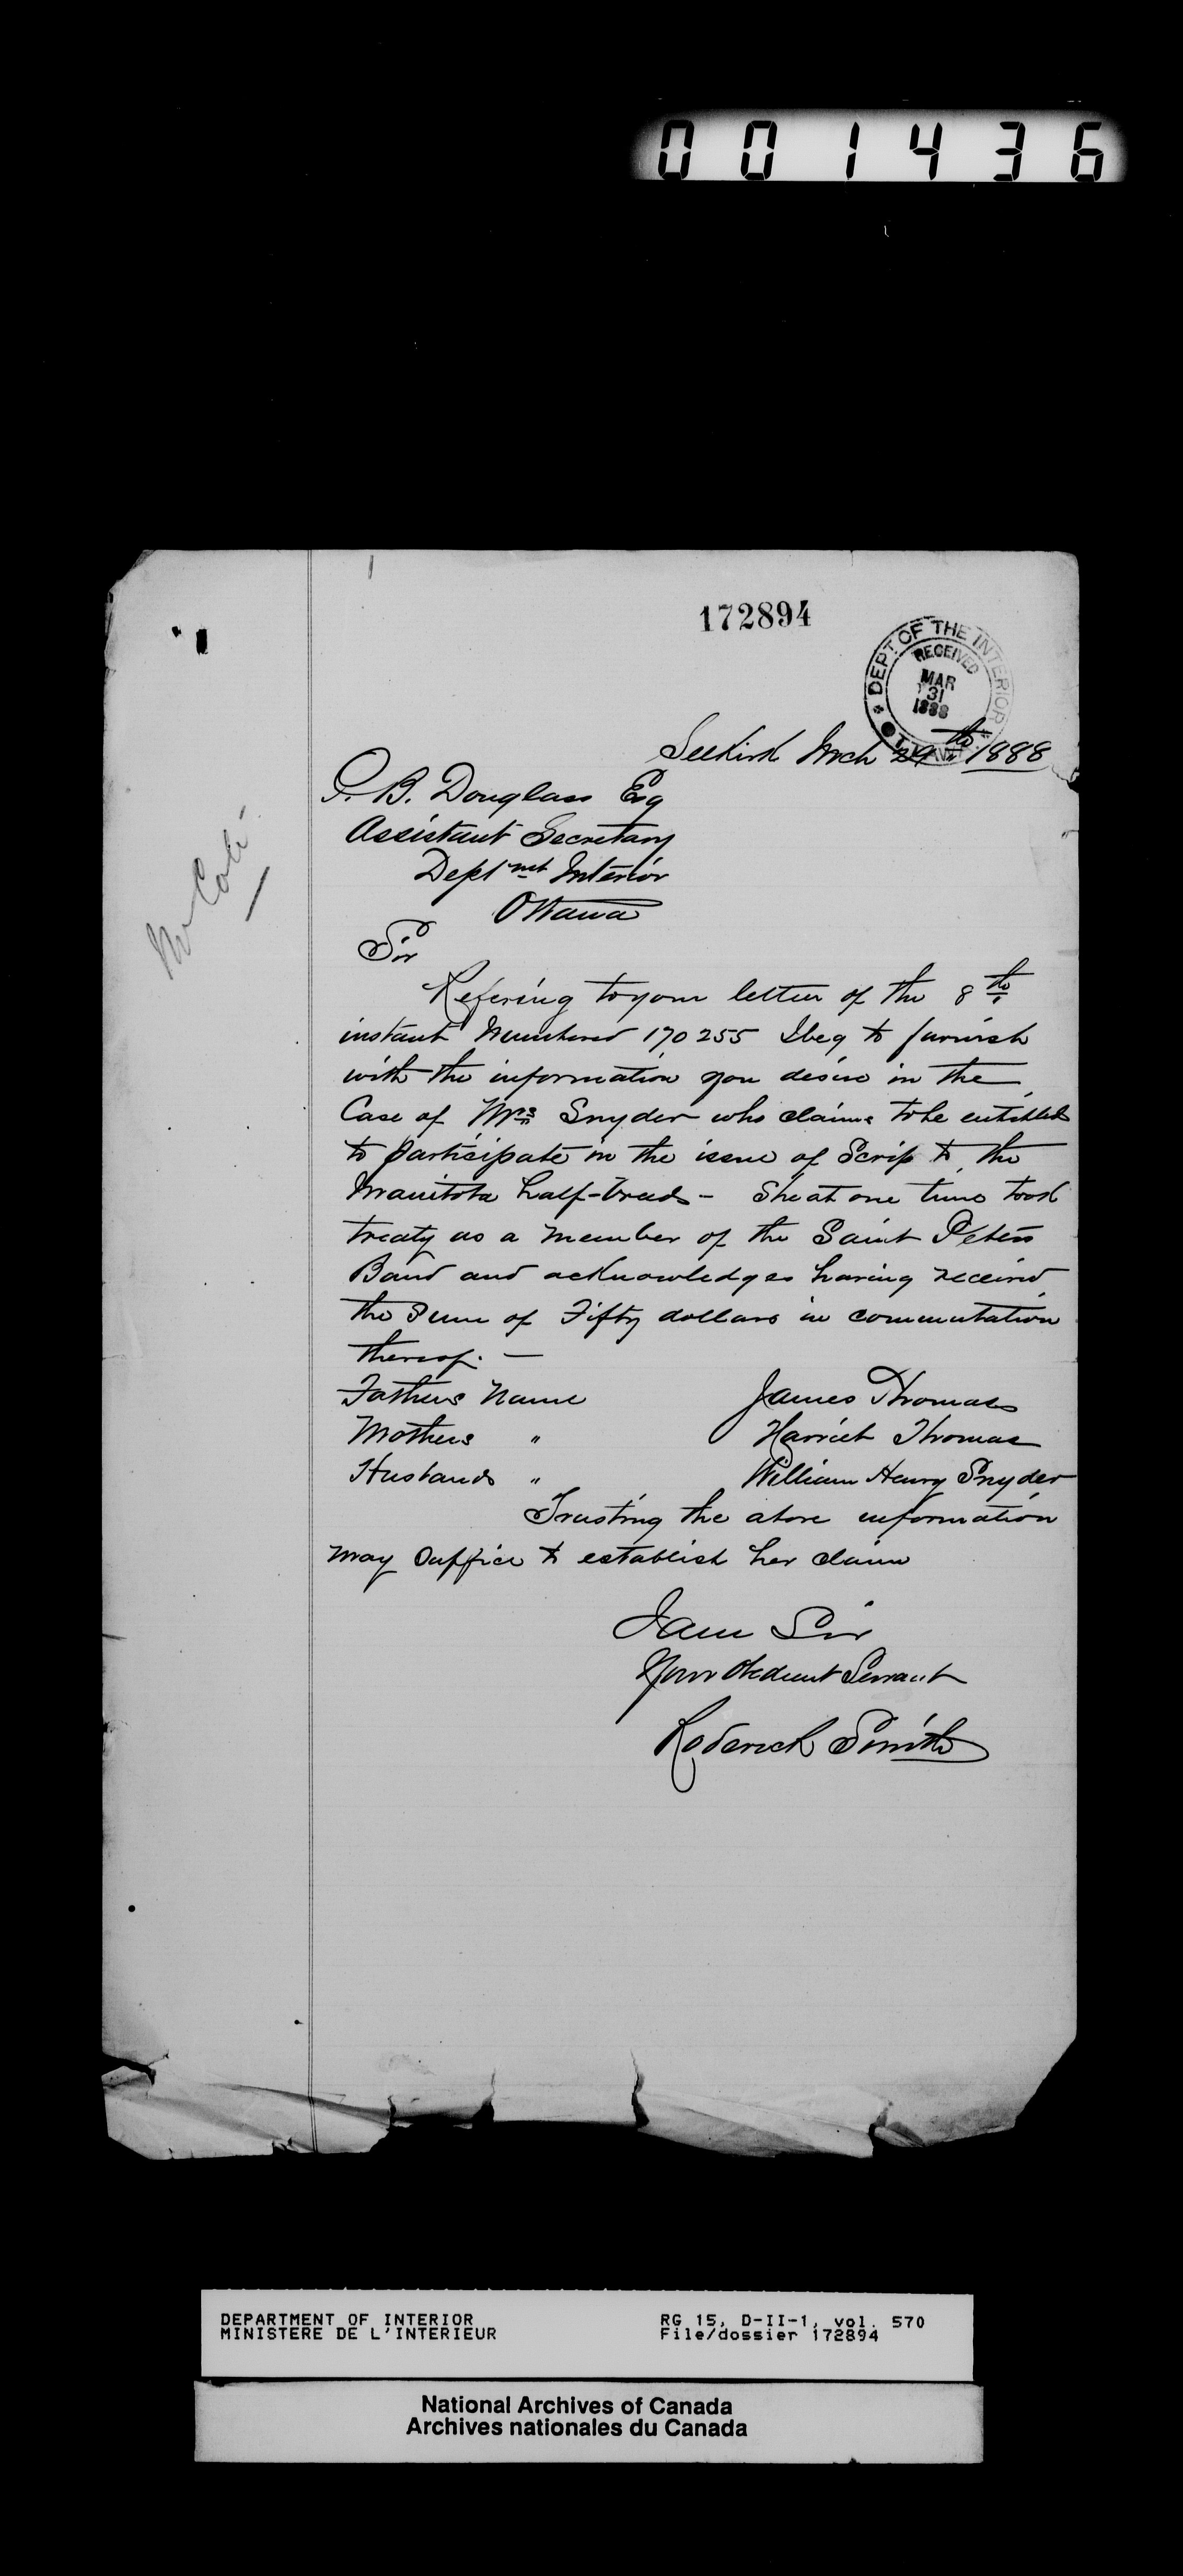 001436
172894
DEPT. OF THE INTERIOR
RECEIVED
MAR
31
1888
OTTAWA
Selkirk Mch 29th 1888
P. B. Douglass Esq
Assistant Secretary
Deptmt Interior
Ottawa
Sir
Refering to your letter of the 8th
instant Numbered 170255 I beg to furnish
with the information you desire in the
Case of Mrs Snyder who claims to be entitled
to participate in the issue of Scrip to the
Manitoba half-breeds - She at one time took
treaty as a member of the Saint Peters
Band and acknowledges having received
the Sum of Fifty dollars in commutation
thereof. —
Fathers Name James Thomas
Mothers " Harriet Thomas
Husbands " William Henry Snyder
Trusting the above information
may suffice to establish her claim
I am Sir
Your Obedient Servant
Roderick Smith
DEPARTMENT OF INTERIOR RG 15, D-II-1, vol. 570
MINISTERE DE L'INTERIEUR File/dossier 172894
National Archives of Canada
Archives nationales du Canada